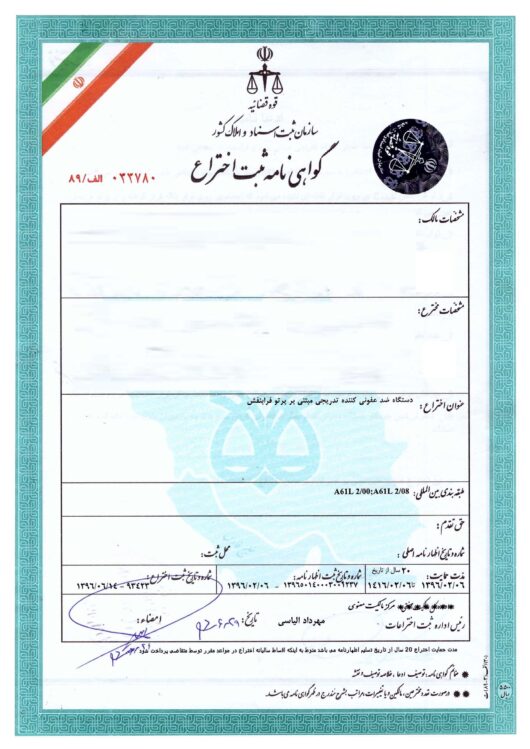 قوه قضائیه
سازمان ثبت اسناد و املاک کشور
گواهی نامه ثبت اختراع
۰۳۳۷۸۰ الف/۸۹
مشخصات مالک :
مشخصات مخترع :
عنوان اختراع : دستگاه ضد عفونی کننده تدریجی مبتنی بر پرتو فرابنفش
طبقه بندی بین المللی: A61L 2/00;A61L 2/08
حق تقدم :
شماره و تاریخ اظهارنامه اصلی : محل ثبت :
مدت حمایت: ۲۰ سال از تاریخ شماره و تاریخ ثبت اظهارنامه: شماره و تاریخ ثبت اختراع:
۱۳۹۶/۰۲/۰۶ تا ۱۴۱۶/۰۲/۰۶ ۱۳۹۶۵۰۱۴۰۰۰۳۰۰۹۲۳۷ - ۱۳۹۶/۰۲/۰۶ ۹۳۴۲۳ - ۱۳۹۶/۰۶/۱۴
مرکز مالکیت معنوی
رئیس اداره ثبت اختراعات مهرداد الیاسی تاریخ: امضاء:
مدت حمایت اختراع 20 سال از تاریخ تسلیم اظهارنامه می باشد منوط به اینکه اقساط سالیانه اختراع در مواعد مقرر توسط متقاضی پرداخت شود
ضمائم گواهی نامه: توصیف، ادعا، خلاصه توصیف و نقشه
درصورت تعدد مخترعین، مالکین و یا تغییرات، مراتب بشرح مندرج در ظهر گواهی نامه می باشد.